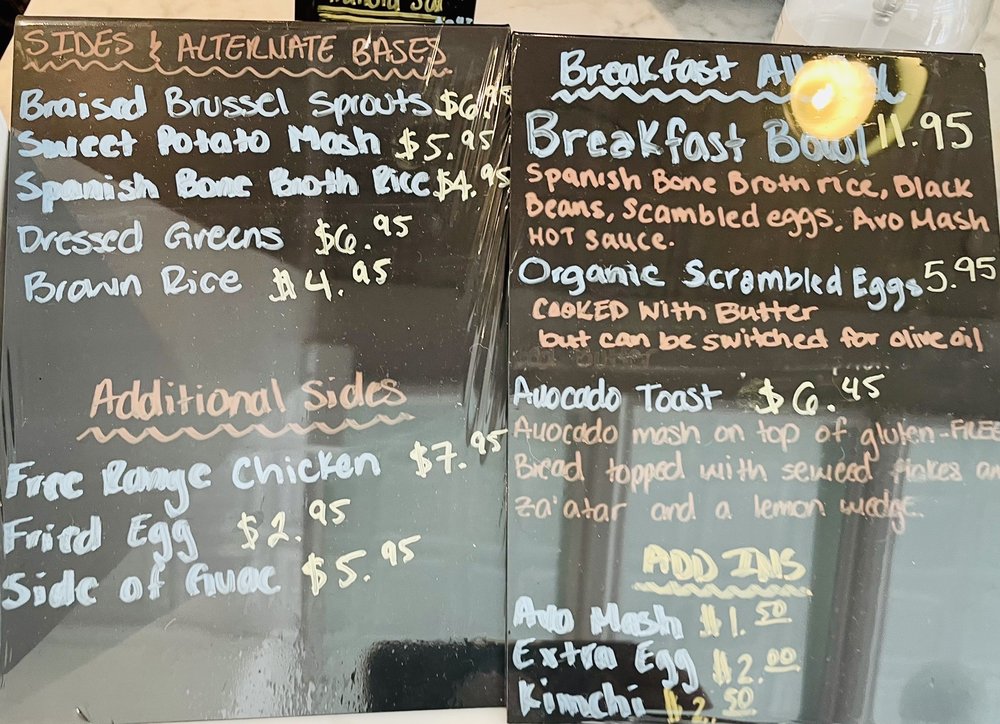 SIDES & ALTERNATE BASES
Braised Brussel Sprouts $6.95
Sweet Potato Mash $5.95
Spanish Bone Broth Rice $4.95
Dressed Greens $6.95
Brown Rice $4.95
Additional Sides
Free Range Chicken $7.95
Fried Egg $2.95
Side of Guac $5.95
Breakfast All
Breakfast Bowl 11.95
Spanish Bone Broth rice, Black
Beans, Scambled eggs, Avo Mash
HOT sauce.
Organic Scrambled Eggs 5.95
COOKED WITH Butter
but can be switched for olive oil
Avocado Toast $6.45
Avocado mash on top of gluten-FREE
Bread topped with seweed flakes an
za'atar and a lemon wedge.
ADD INS
Avo Mash $1.50
Extra Egg $2.00
Kimchi $2.50